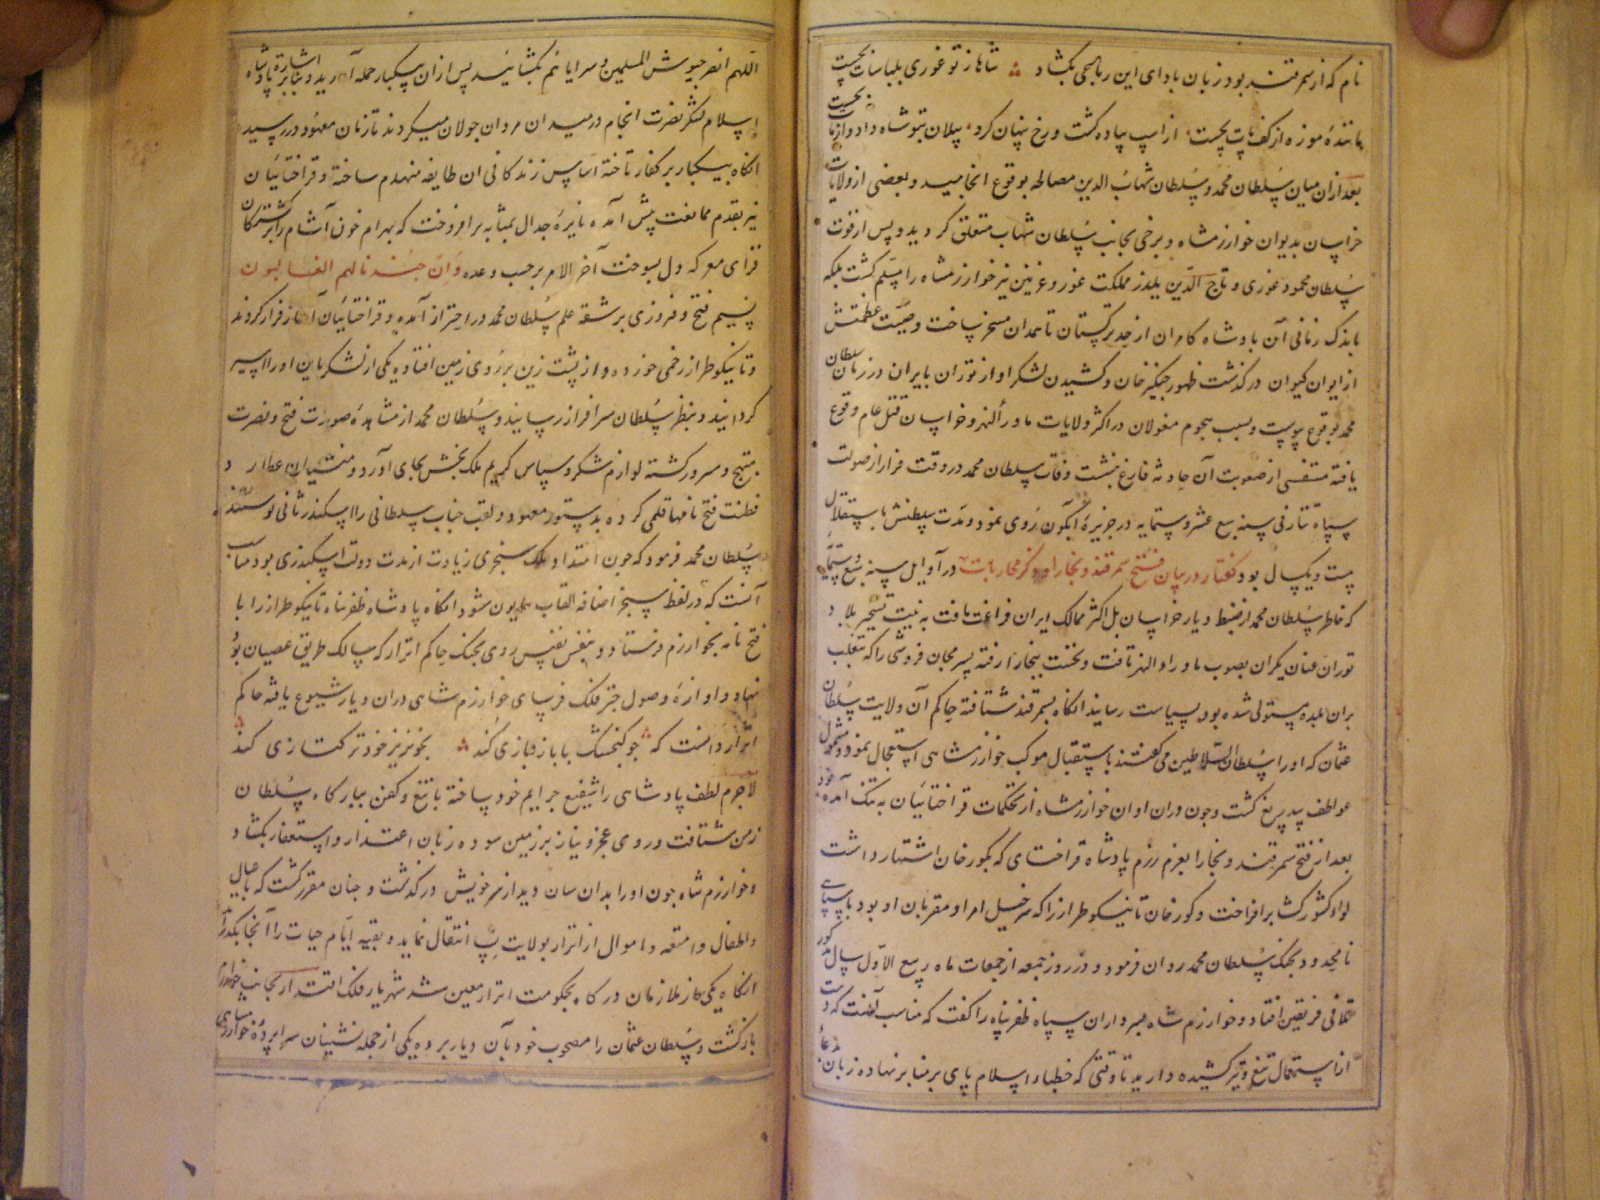 نام که از سمرقند بود زبان بادای این رباعی بکشاد شاها ز تو غوری بلباسات بجست
ماننده موزه از کف پات بجست از اسپ پیاده کشت و رخ پنهان کرد پیلان بتو شاه داد و از مات بجست
بعد ازان میان سلطان محمد و سلطان شهاب الدین مصالحه بوقوع انجامید و بعضی از ولایات
خراسان بدیوان خوارزمشاه و برخی بجانب سلطان شهاب متعلق کردید و پس از فوت
سلطان محمود غوری و تاج الدین یلدز مملکت غور و غزنین نیز خوارزمشاه را مسلم کشت بلکه
باندک زمانی آن پادشاه کامران از حد ترکستان تا همدان مسخر ساخت و صیت عظمتش
از ایوان کیوان درکذشت ظهور چنکیز خان و کشیدن لشکر او از توران بایران در زمان سلطان
محمد بوقوع پیوست و بسبب هجوم مغولان در اکثر ولایات ماورألنهر و خراسان قتل عام وقوع
یافته متنفسی از صعوبت آن حادثه فارغ ننشست وفات سلطان محمد در وقت فرار از صولت
سپاه تتار فی سنه سبع عشر و ستمایه در جزیرهٔ آبکون روی نمود و مدت سلطنتش باستقلال
بیست و یکسال بود کفتار در بیان فتح سمرقند و بخارا و ذکر محاربات در آوایل سنه تسع و ستمایه
که خاطر سلطان محمد از ضبط دیار خراسان بل اکثر ممالک ایران فراغت یافت به نیت تسخیر بلاد
توران عنان یکران بصوب ماوراءالنهر تافت و نخست ببخارا رفته پسر مجان فروشی را که بتغلب
بران بلده مستولی شده بود بسیاست رسانید انکاه بسمرقند شتافته حاکم آن ولایت سلطان
عثمان که اورا سلطان السلاطین می کفتند باستقبال موکب خوارزمشاهی استعجال نمود و مشمول
عواطف بیدریغ کشت و چون دران اوان خوارزمشاه از تحکمات قراختائیان به تنک آمده بود
بعد از فتح سمرقند و بخارا بعزم رزم پادشاه قراختای که بکورخان اشتهار داشت
لواء کشور کشا برافراخت و کورخان تانیکو طراز را که سرخیل امرا و مقربان او بود با سپاهی
نامحدود بجنک سلطان محمد روان فرمود و در روز جمعه از جمعات ماه ربیع الاول سال مذکور
تلاقی فریقین افتاد و خوارزمشاه بسرداران سپاه ظفرپناه را کفت که مناسب آنست که دست
از استعمال تیغ و تیر کشیده دارید تا وقتی که خطباء اسلام پای بر منابر نهاده زبان بدعاء
اللهم انصر جیوش المسلمین و سرایاهم بکشایند پس ازان بیکبار حمله آرید و بنا بر اشارة پادشاه
اسلام لشکر نصرت انجام در میدان مردان جولان میکردند تا زمان معهود در رسید
انکاه بیکبار بر کفار تاخته اساس زندکانی ان طایفه منهدم ساخته و قراختائیان
نیز بقدم ممانعت پیش آمده نایرهٔ جدال بمثابه برافروخت که بهرام خون آشام را بر کشتکان
فزای معرکه دل بسوخت آخر الامر برحسب وعده وَاِنّ جُندنا لهم الغالبون
نسیم فتح و فیروزی بر شقهٔ علم سلطان محمد در اهتزاز آمده و قراختائیان آغاز فرار کردند
و تانیکو طراز زخمی خورده و از پشت زین بر روی زمین افتاده یکی از لشکریان اورا اسیر
کردانید و بنظر سلطان سرافراز رسانید و سلطان محمد از مشاهدهٔ صورت فتح و نصرت
مبتهج و مسرور کشته لوازم شکر و سپاس کریم ملک بخش بجای آورد و منشیان عطارد
فطنت فتح نامها قلمی کرده بدستور معهود و لقب جناب سلطانی را اسکندر ثانی نوشتند
سلطان محمد فرمود که چون امتداد ملک سنجری زیادت از مدت دولت اسکندری بود مناسب
آنست که در لفظ سنجر اضافه القاب همایون شود انکاه پادشاه ظفرپناه تانیکو طراز را با
فتح نامه بخوارزم فرستاد و بنفس نفیس روی بجنک حاکم اترار که سالک طریق عصیان بود
نهاد و اوازهٔ وصول چتر فلک فرسای خوارزم شاهی دران دیار شیوع یافته حاکم
اترار دانست که چو کنجشک با باز بازی کند بخونریز خود ترکتازی کند
لاجرم لطف پادشاهی را شفیع جرایم خود ساخته با تیغ و کفن ببارکاه سلطان
زمن شتافت و روی عجز و نیاز بر زمین سوده زبان اعتذار و استغفار بکشاد
و خوارزم شاه چون اورا بدان سان دید از سر خونش درکذشت و چنان مقرر کشت که با عیال
و اطفال و امتعه و اموال از اترار بولایت نسا انتقال نماید و بقیه ایام حیات را آنجا بکذراند
انکاه یکی از ملازمان درکاه بحکومت اترار معین شد شهریار فلک اقتدار بجانب خوارزم
بازکشت و سلطان عثمان را مصحوب خود بآن دیار برده یکی از حجله نشینان سراپردهٔ خوارزمشاهی